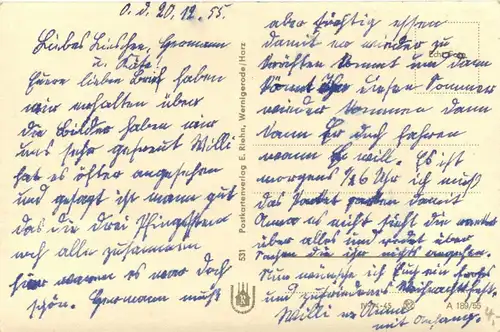 O. d. 20.12.55.
Liebes Lieschen, Hermann
u. Käte!
Euere lieben Brief haben
wir erhalten über
die Bilder haben wir
uns sehr gefreut Willi
hat es öfter angesehen
und gesagt ist man gut
das die drei Pfingsten
noch alle zusammen
hier waren es war doch
schön. Hermann muß
aber tüchtig essen
damit er wieder zu
Kräften kommt und dann
könnt Ihr diesen Sommer
wieder kommen dann
kann Er doch fahren
wann Er will. Es ist
morgens 1/2 6 Uhr ich muß
das Paket packen damit
Anna es nicht sieht die
über alles und redet über
Sachen die ihr nichts angehen.
Nun wünsche ich Euch ein frohes
und zufriedenes Weihnachtsfest.
Willi u. Anna
mit Anhang.
531 Postkartenverlag E. Riehn, Wernigerode/Harz
A 189/55